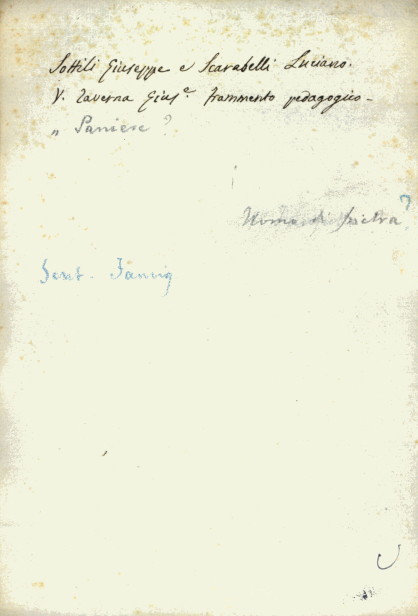 Sottili Giuseppe e Scarabelli Luciano.
V. Taverna Gius.e frammento pedagogico -
„ Paniere ?
Uomo di pietra ?